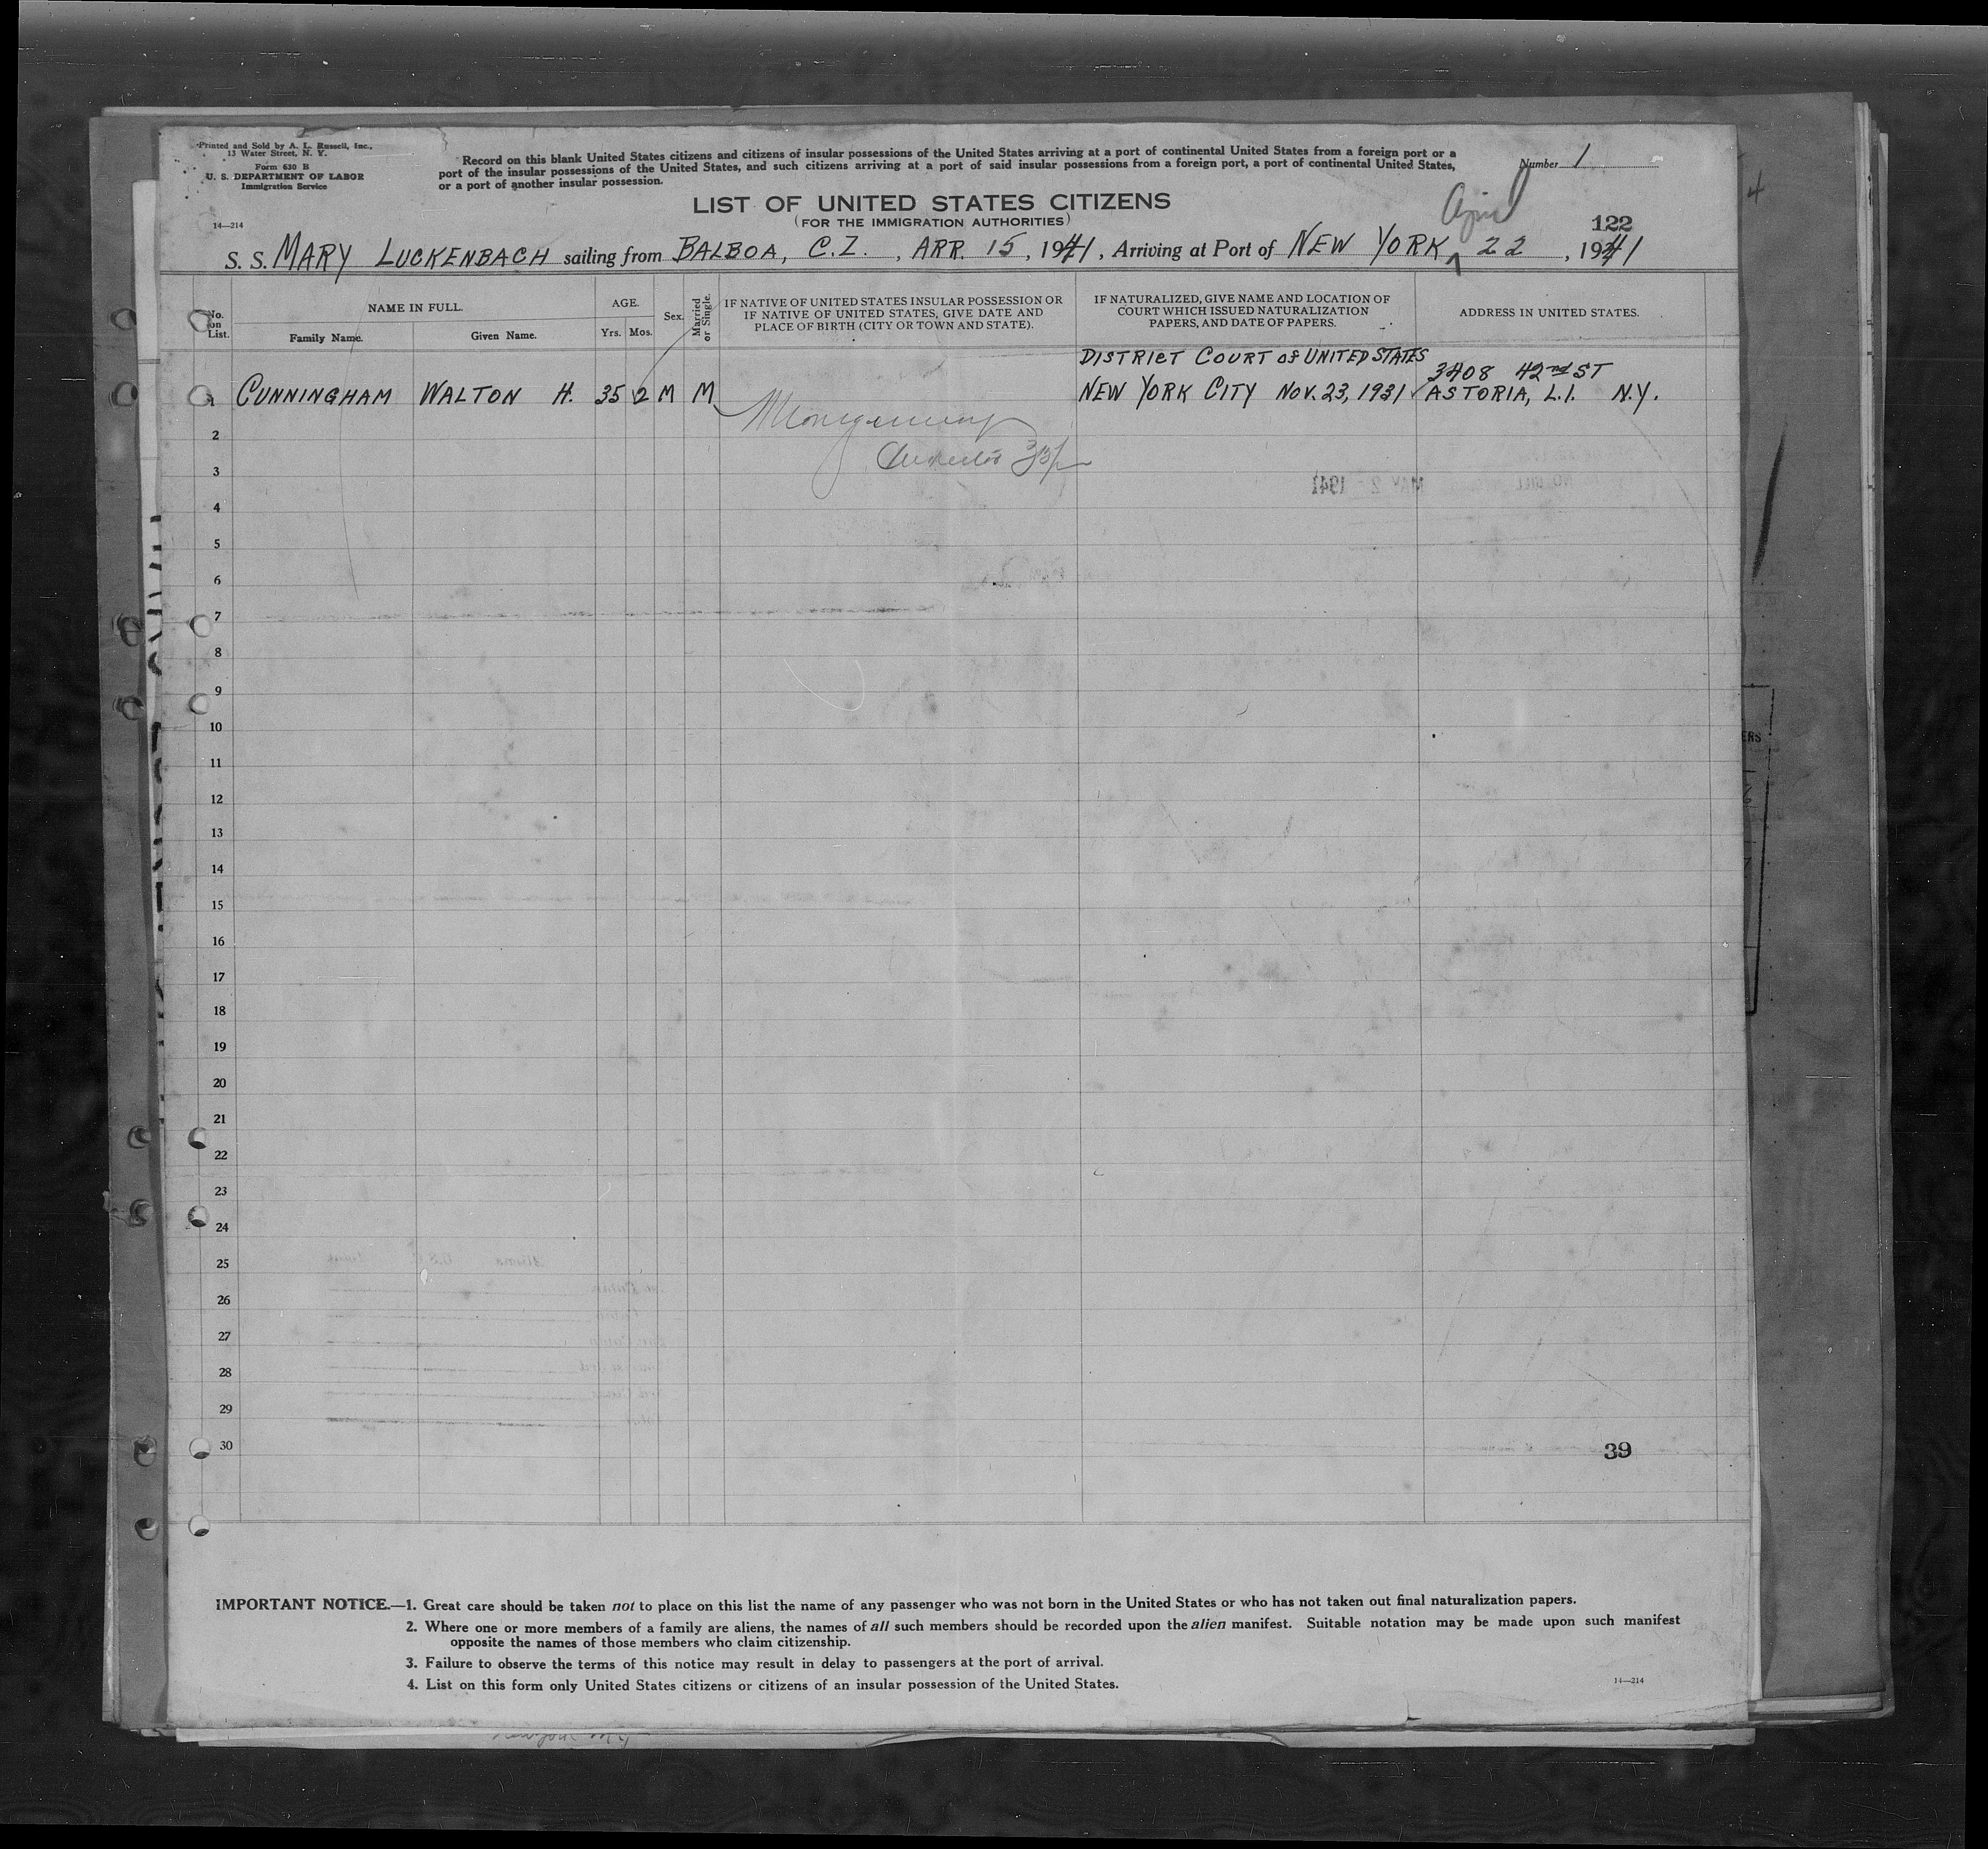 Printed and Sold by A. L. Russell, Inc.,
13 Water Street, N. Y.
Form 630 B
U. S. DEPARTMENT OF LABOR
Immigration Service
14—214
Record on this blank United States citizens and citizens of insular possessions of the United States arriving at a port of continental United States from a foreign port or a
port of the insular possessions of the United States, and such citizens arriving at a port of said insular possessions from a foreign port, a port of continental United States,
or a port of another insular possession.
Number 1
LIST OF UNITED STATES CITIZENS
(FOR THE IMMIGRATION AUTHORITIES)
April
122
S. S. MARY LUCKENBACH sailing from BALBOA, C.Z. , APR. 15, 1941, Arriving at Port of NEW YORK, 22 , 1941
No. on List.
NAME IN FULL.
Family Name.
Given Name.
AGE.
Yrs. Mos.
Sex.
Married or Single.
IF NATIVE OF UNITED STATES INSULAR POSSESSION OR
IF NATIVE OF UNITED STATES, GIVE DATE AND
PLACE OF BIRTH (CITY OR TOWN AND STATE).
IF NATURALIZED, GIVE NAME AND LOCATION OF
COURT WHICH ISSUED NATURALIZATION
PAPERS, AND DATE OF PAPERS.
ADDRESS IN UNITED STATES.
DISTRICT COURT OF UNITED STATES
3408 42nd ST
1 CUNNINGHAM WALTON H. 35 2 M M NEW YORK CITY NOV. 23, 1931 ASTORIA, L.I. N.Y.
Montgomery
2
3
MAY 2 1941
4
5
6
7
8
9
10
11
12
13
14
15
16
17
18
19
20
21
22
23
24
25
26
27
28
29
30
39
IMPORTANT NOTICE.—1. Great care should be taken not to place on this list the name of any passenger who was not born in the United States or who has not taken out final naturalization papers.
2. Where one or more members of a family are aliens, the names of all such members should be recorded upon the alien manifest. Suitable notation may be made upon such manifest
opposite the names of those members who claim citizenship.
3. Failure to observe the terms of this notice may result in delay to passengers at the port of arrival.
4. List on this form only United States citizens or citizens of an insular possession of the United States.
14—214